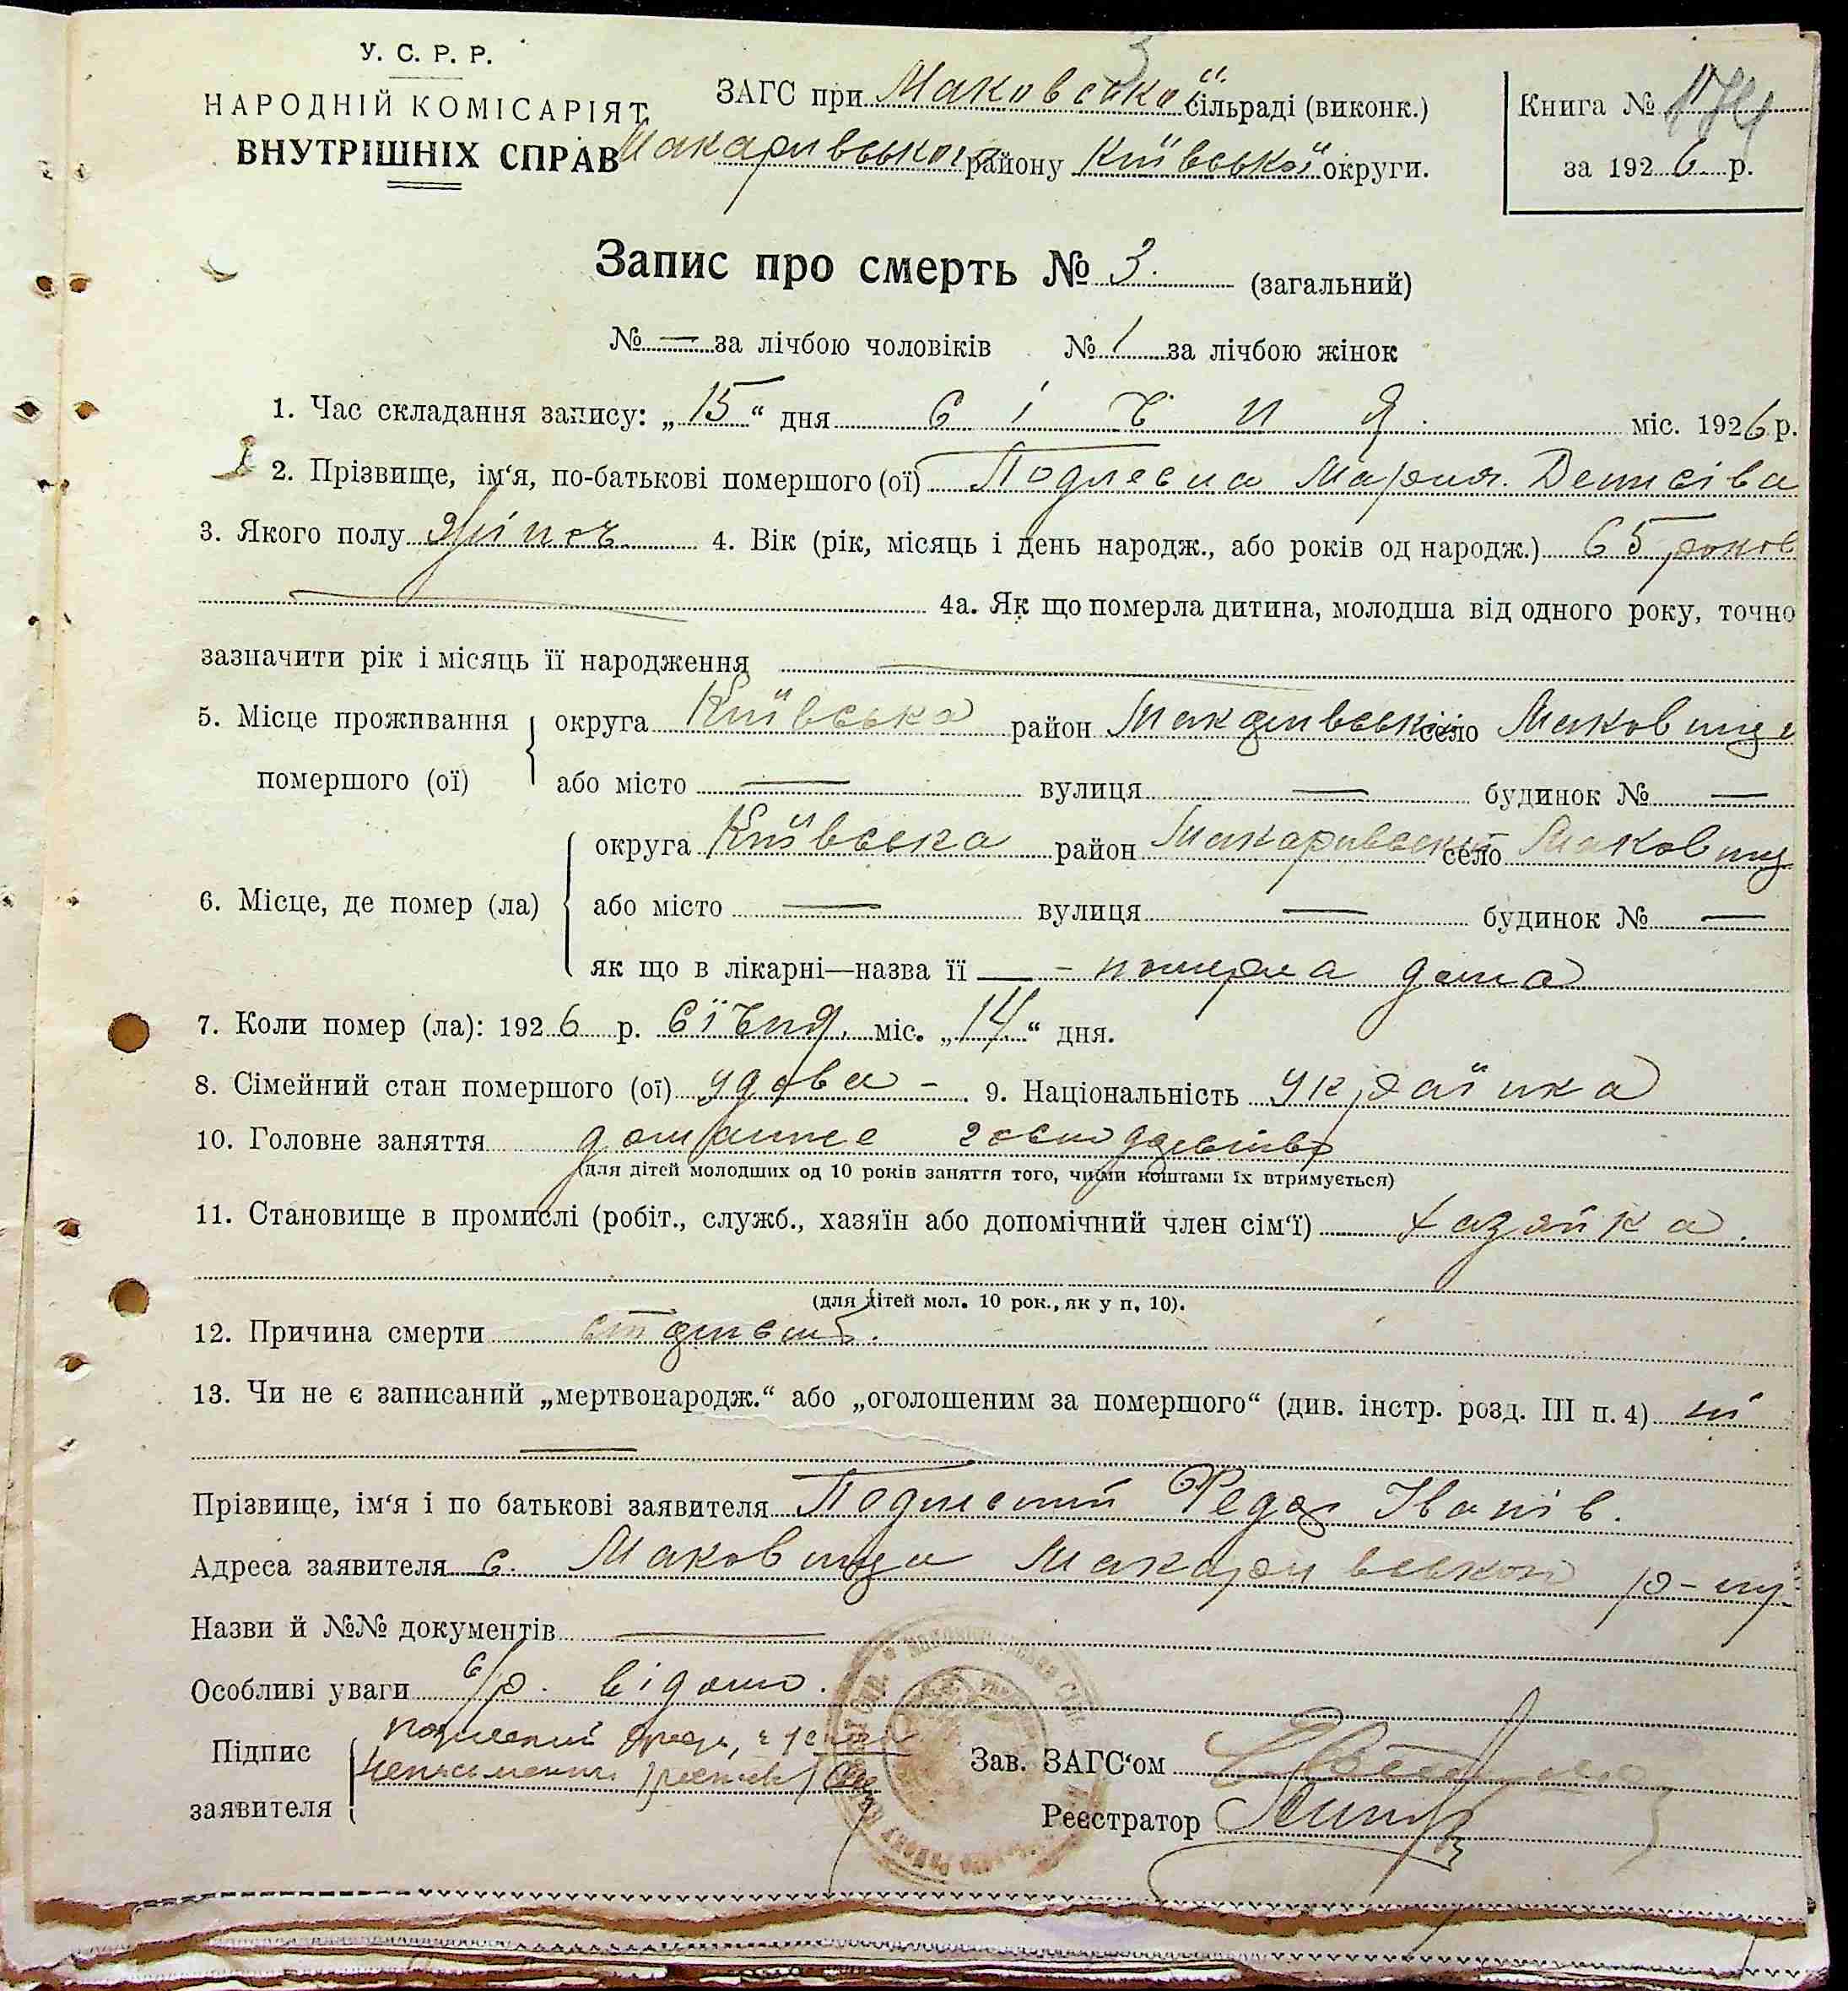 У. С. Р. Р.
НАРОДНІЙ КОМІСАРІЯТ
ВНУТРІШНІХ СПРАВ
3
ЗАГС при Маковської сільраді (виконк.)
Макаривського району Київської округи.
Книга № 174
за 1926 р.
Запис про смерть № 3. (загальний)
№ — за лічбою чоловіків № 1 за лічбою жінок
1. Час складання запису: „15“ дня січня міс. 1926 р.
2. Прізвище, ім‘я, по-батькові помершого (ої) Подлесна Мария Денисіва
3. Якого полу жіноч. 4. Вік (рік, місяць і день народж., або років од народж.) 65 роков
4а. Як що померла дитина, молодша від одного року, точно
зазначити рік і місяць її народження —
5. Місце проживання помершого (ої) округа Київська район Макаривський село Маковище
або місто — вулиця — будинок № —
6. Місце, де помер (ла) округа Київська район Макаривський село Маковищ
або місто — вулиця — будинок № —
як що в лікарні—назва її — - померла дома
7. Коли помер (ла): 1926 р. січня. міс. „14“ дня.
8. Сімейний стан помершого (ої) удова -. 9. Національність українка
10. Головне заняття домашнее господарство
(для дітей молодших од 10 років заняття того, чиїми коштами їх втримується)
11. Становище в промислі (робіт., служб., хазяїн або допомічний член сім‘ї) хазяйка.
(для дітей мол. 10 рок., як у п. 10).
12. Причина смерти
13. Чи не є записаний „мертвонародж.“ або „оголошеним за помершого“ (див. інстр. розд. III п. 4) ні
Прізвище, ім‘я і по батькові заявителя Подлесний Федор Іванів.
Адреса заявителя с. Маковища Макаривського р-ну
Назви й №№ документів —
Особливі уваги с/р. відомо.
Підпис заявителя
Зав. ЗАГС‘ом
Реєстратор